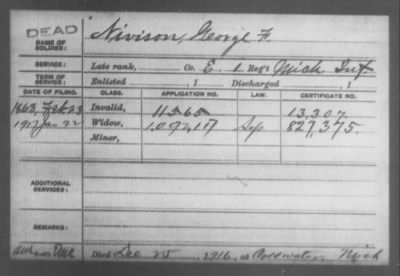 DEAD
NAME OF SOLDIER: Nivison, George F.
SERVICE: Late rank, Co. E, 1 Reg't Mich Inf
TERM OF SERVICE: Enlisted , 1 Discharged , 1
DATE OF FILING. CLASS. APPLICATION NO. LAW. CERTIFICATE NO.
1863, Feb 23 Invalid, 11565 13,307
1917 Jan 22 Widow, 1092,117 827,375.
Minor,
ADDITIONAL SERVICES:
REMARKS:
Died Dec 25, 1916, at Coldwater, Mich